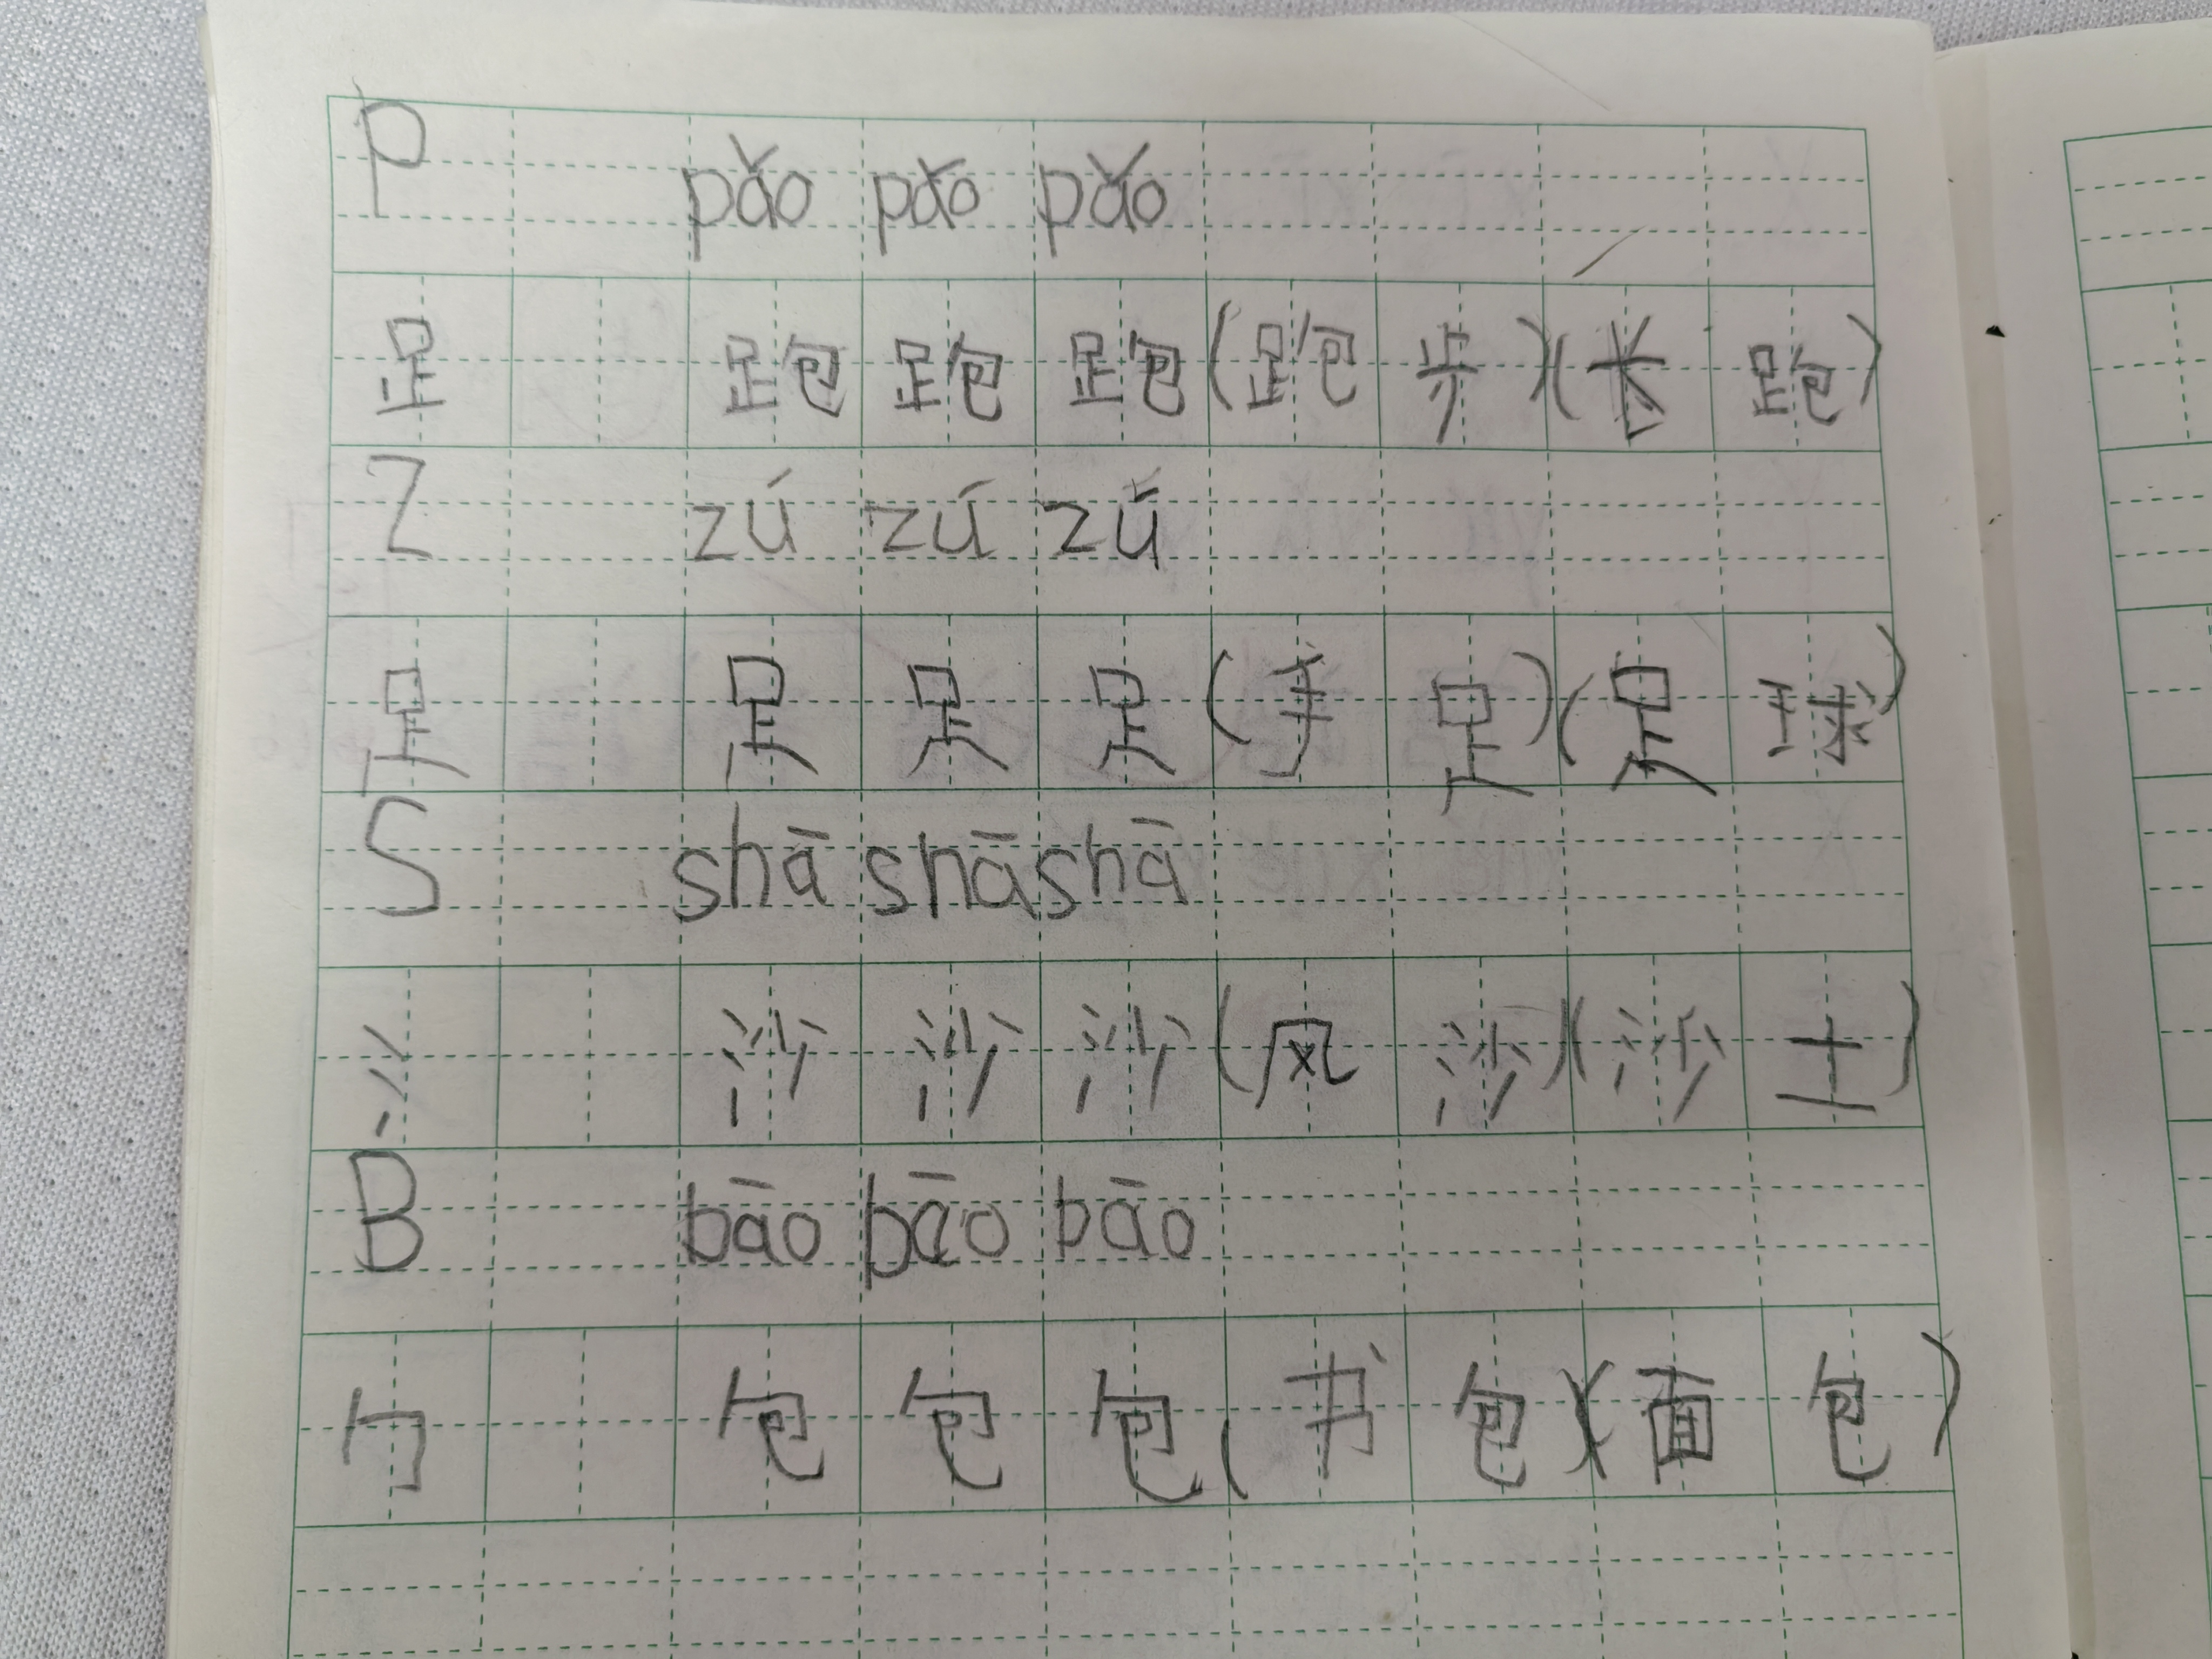 P pǎo pǎo pǎo
𧾷 跑 跑 跑 (跑 步) (长 跑)
Z zú zú zú
足 足 足 足 (手 足) (足 球)
S shā shā shā
氵 沙 沙 沙 (风 沙) (沙 土)
B bāo bāo bāo
勹 包 包 包 (书 包) (面 包)